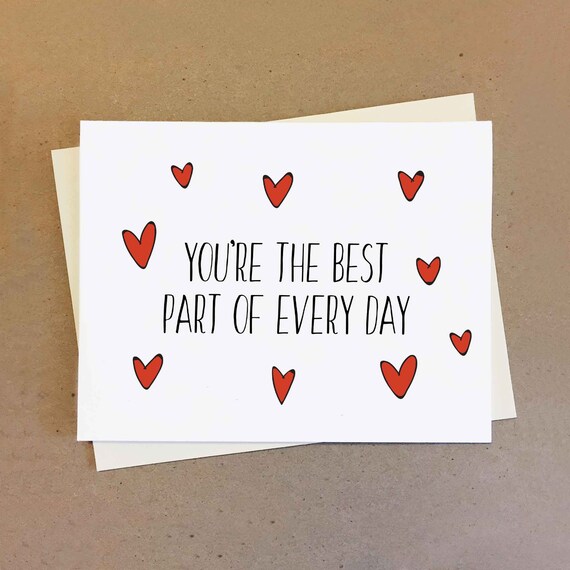 YOU'RE THE BEST
PART OF EVERY DAY